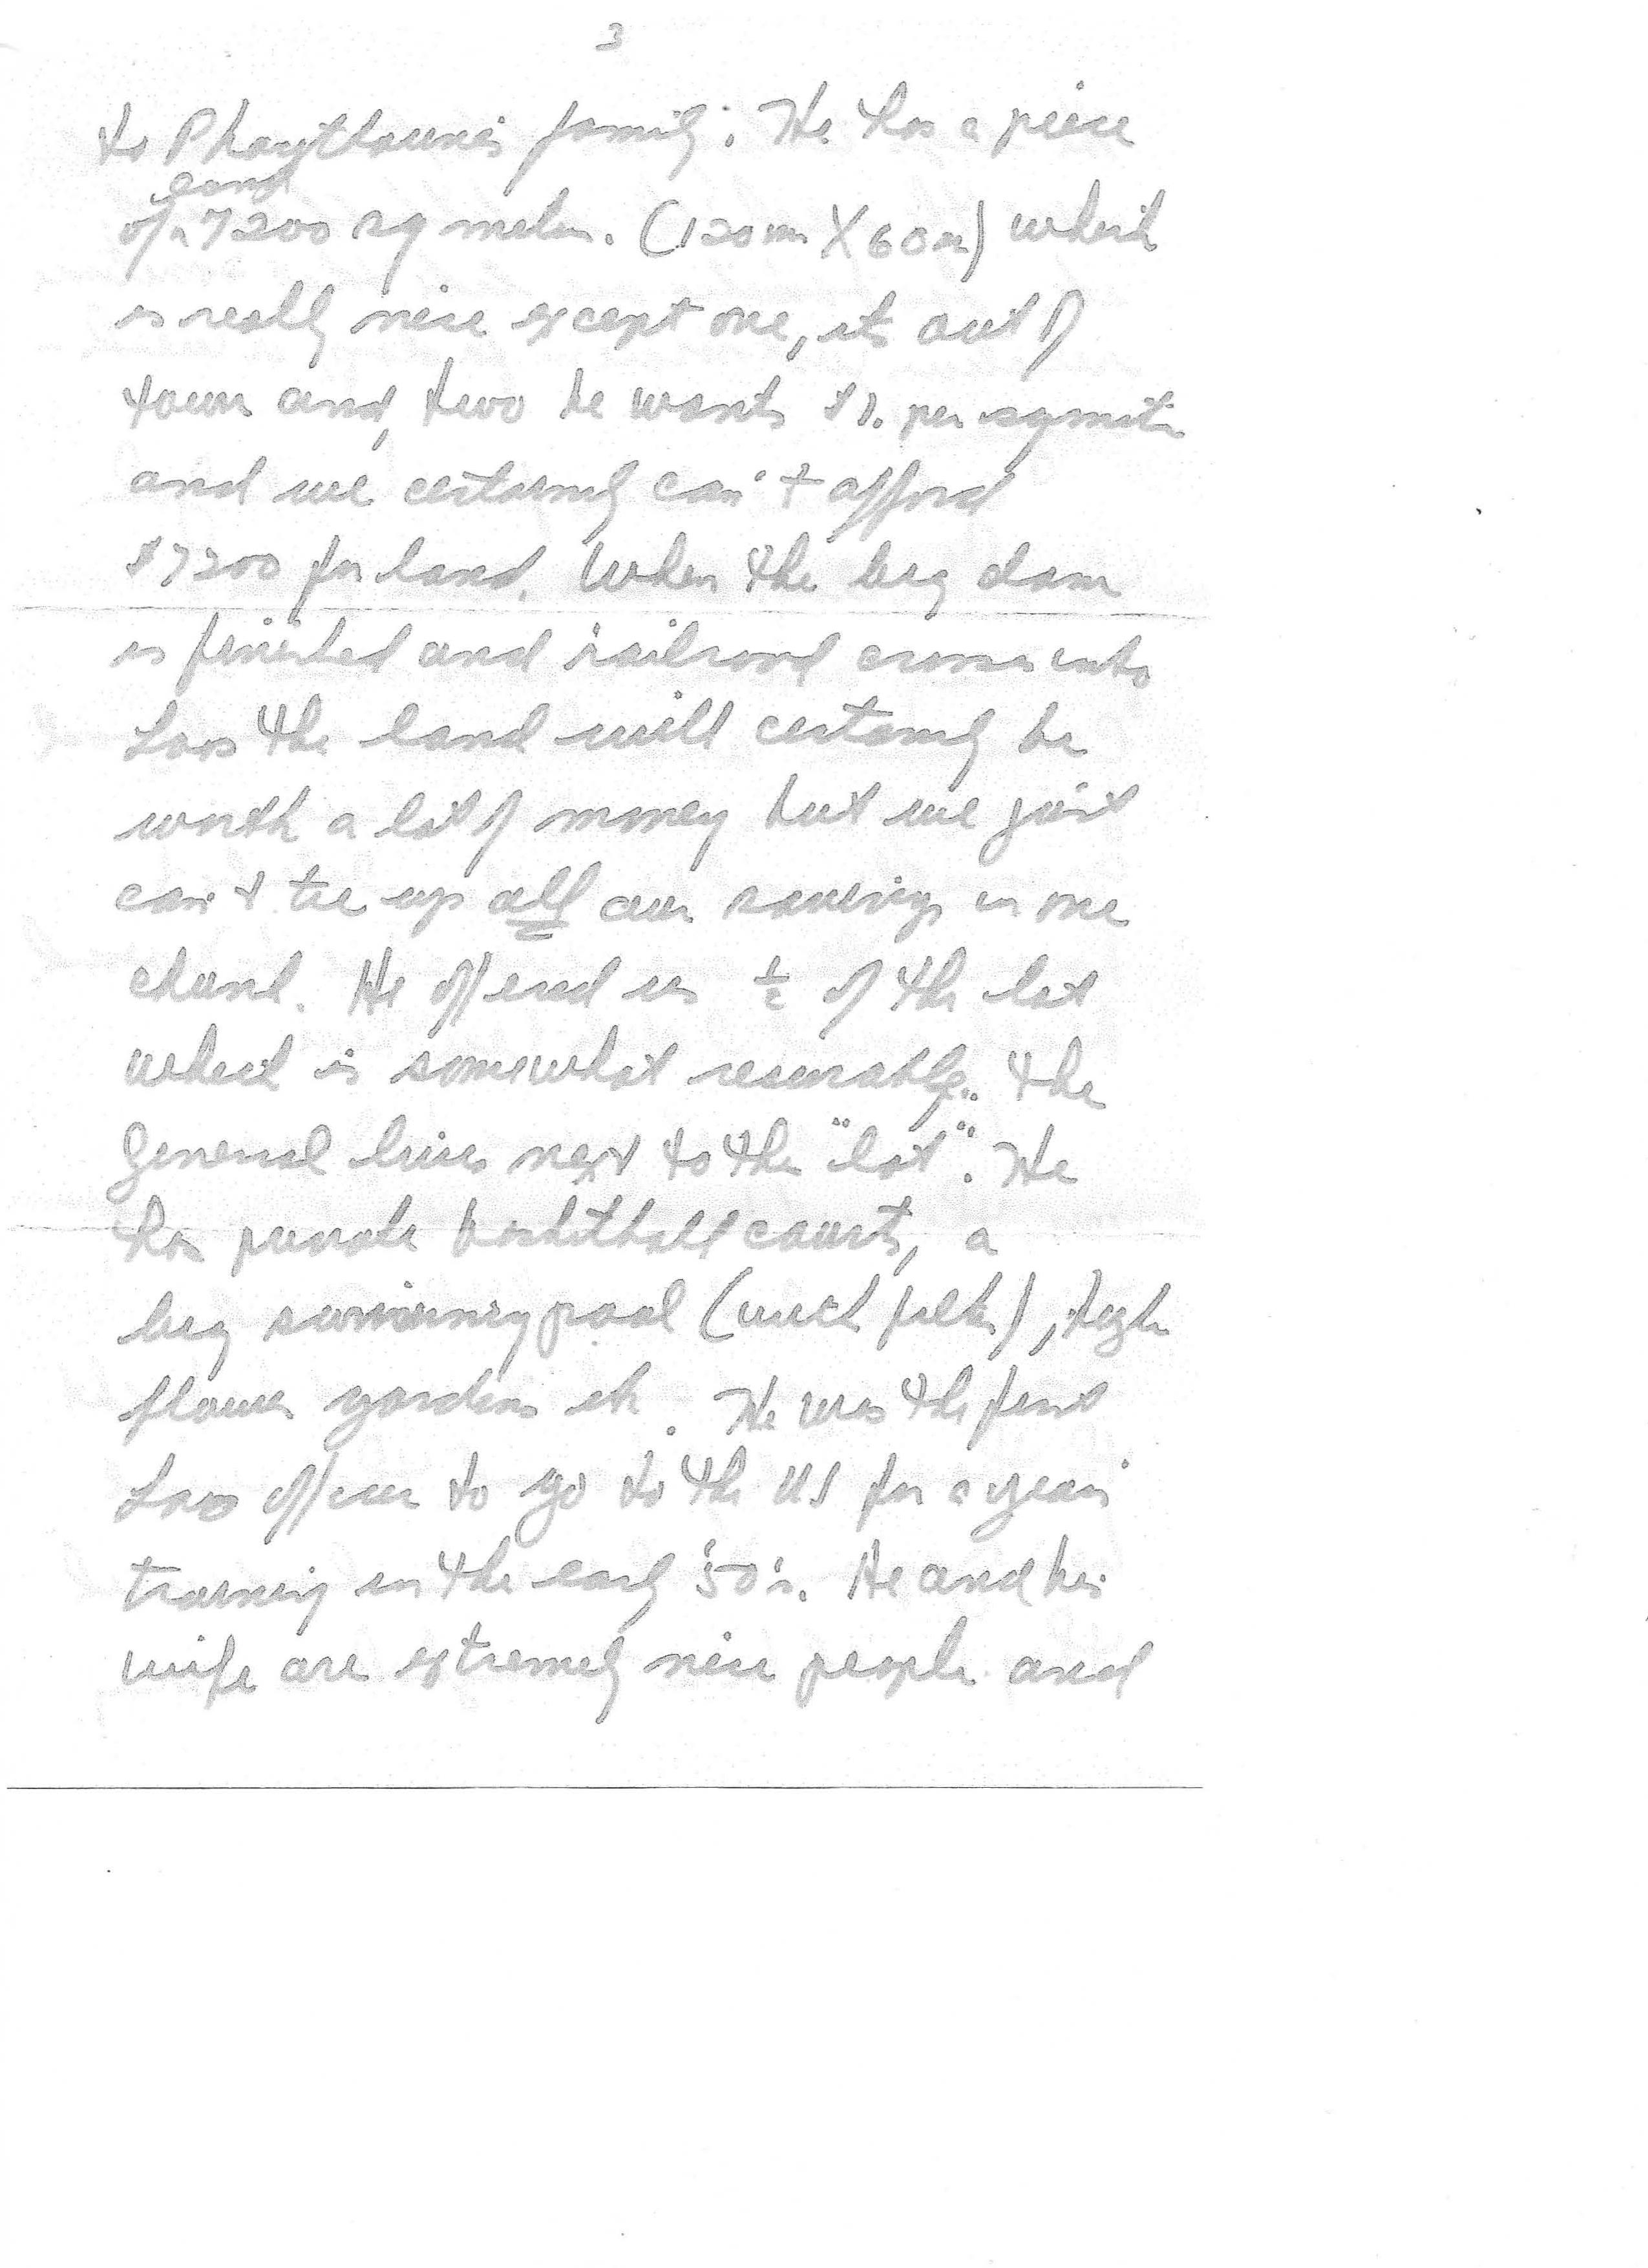 3
to Phaythoune's family. He has a piece
land
of 7200 sq meters. (120m X 60m) which
is really nice except one, its out of
town and, two he wants $1. per sq meter
and we certainly can't afford
$7200 for land. When the big dam
is finished and railroad crosses into
Laos the land will certainly be
worth a lot of money but we just
can't tie up all our savings in one
chunk. He offered us ½ of the lot
which is somewhat reasonable. The
General lives next to the "lot". He
has private basketball courts, a
big swimming pool (with filter), huge
flower gardens etc. He was the first
Laos officer to go to the US for a year
training in the early '50's. He and his
wife are extremely nice people and